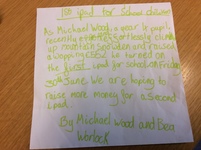 1st ipad for School children
As Michael Wood, a year 1 pupil
recently effortlessly climbed
up mountain Snowdon and raised
a whopping to be turned on
the first ipad for school on Friday
30th June. We are hoping to
raise more money for a second
ipad.
By Michael Wood and Bea
Worlock